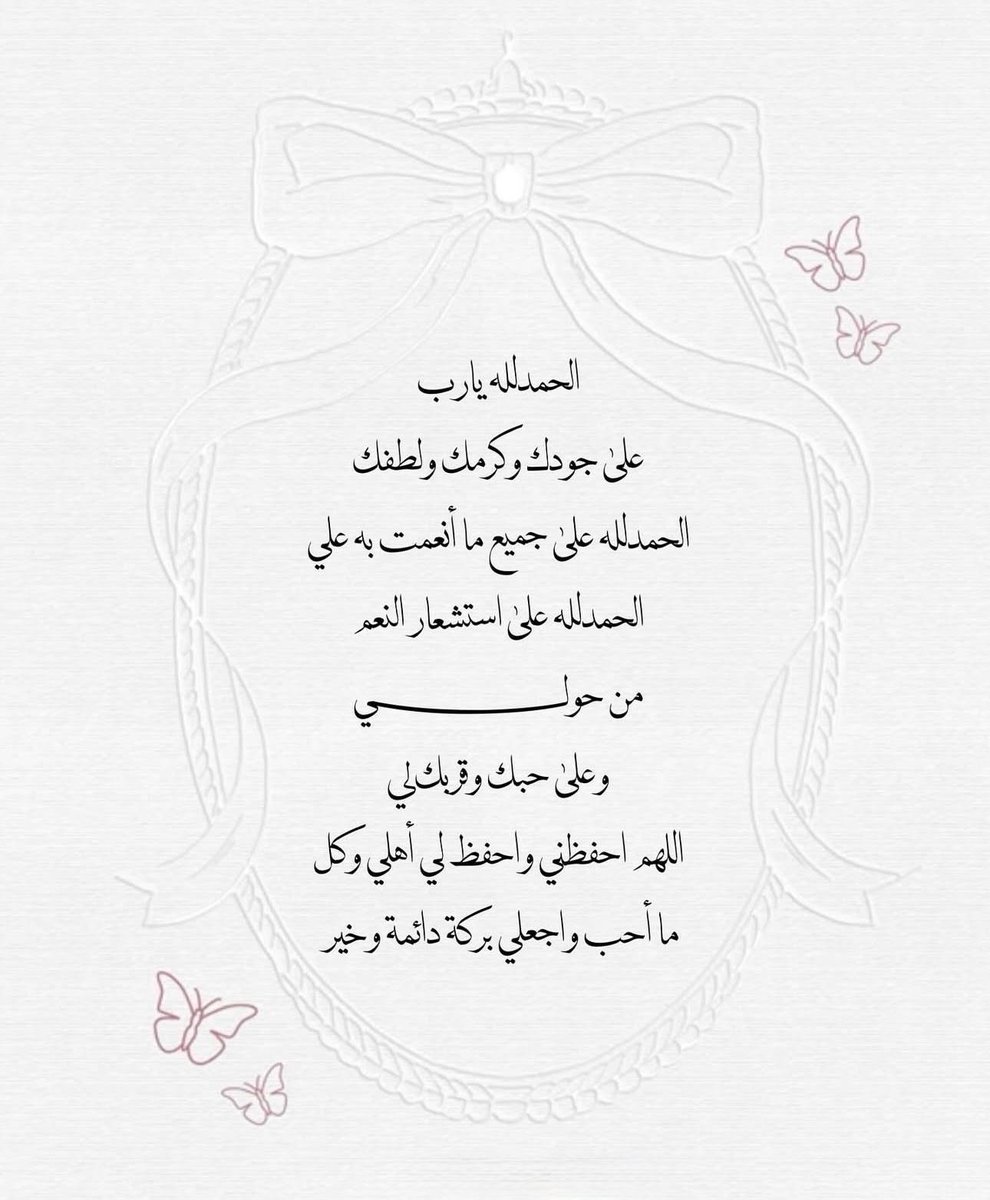 الحمدلله يارب
علىٰ جودك وكرمك ولطفك
الحمدلله علىٰ جميع ما أنعمت به علي
الحمدلله علىٰ استشعار النعم
من حولـــــــــي
وعلىٰ حبك وقربك لي
اللهم احفظني واحفظ لي أهلي وكل
ما أحب واجعلي بركة دائمة وخير